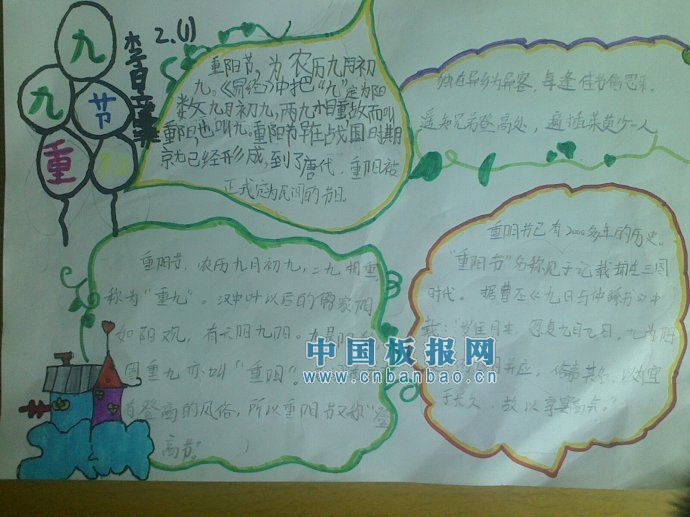 九
九
节
重
阳
2.(1)
重阳节,为农历九月初
九。《易经》中把"九"定为阳
数,九月初九,两九相重故而叫
重阳,也叫九。重阳节早在战国时期
就已经形成,到了唐代,重阳被
正式定为民间的节日。
独在异乡为异客,每逢佳节倍思亲。
遥知兄弟登高处,遍插茱萸少一人
重阳节,农历九月初九,二九相重
称为"重九"。汉中叶以后的儒家阴
如阳观,有六阴九阳。九是阳
固重九亦叫"重阳"。
有登高的风俗,所以重阳节又称"登
高节"。
重阳节已有2000多年的历史。
"重阳节"名称见于记载却在三国
时代。据曹丕《九日与仲
载:"岁往月来,忽复九月九日。九为阳
于长久,故以享宴高会。"
中国板报网
www.cnbanbao.cn